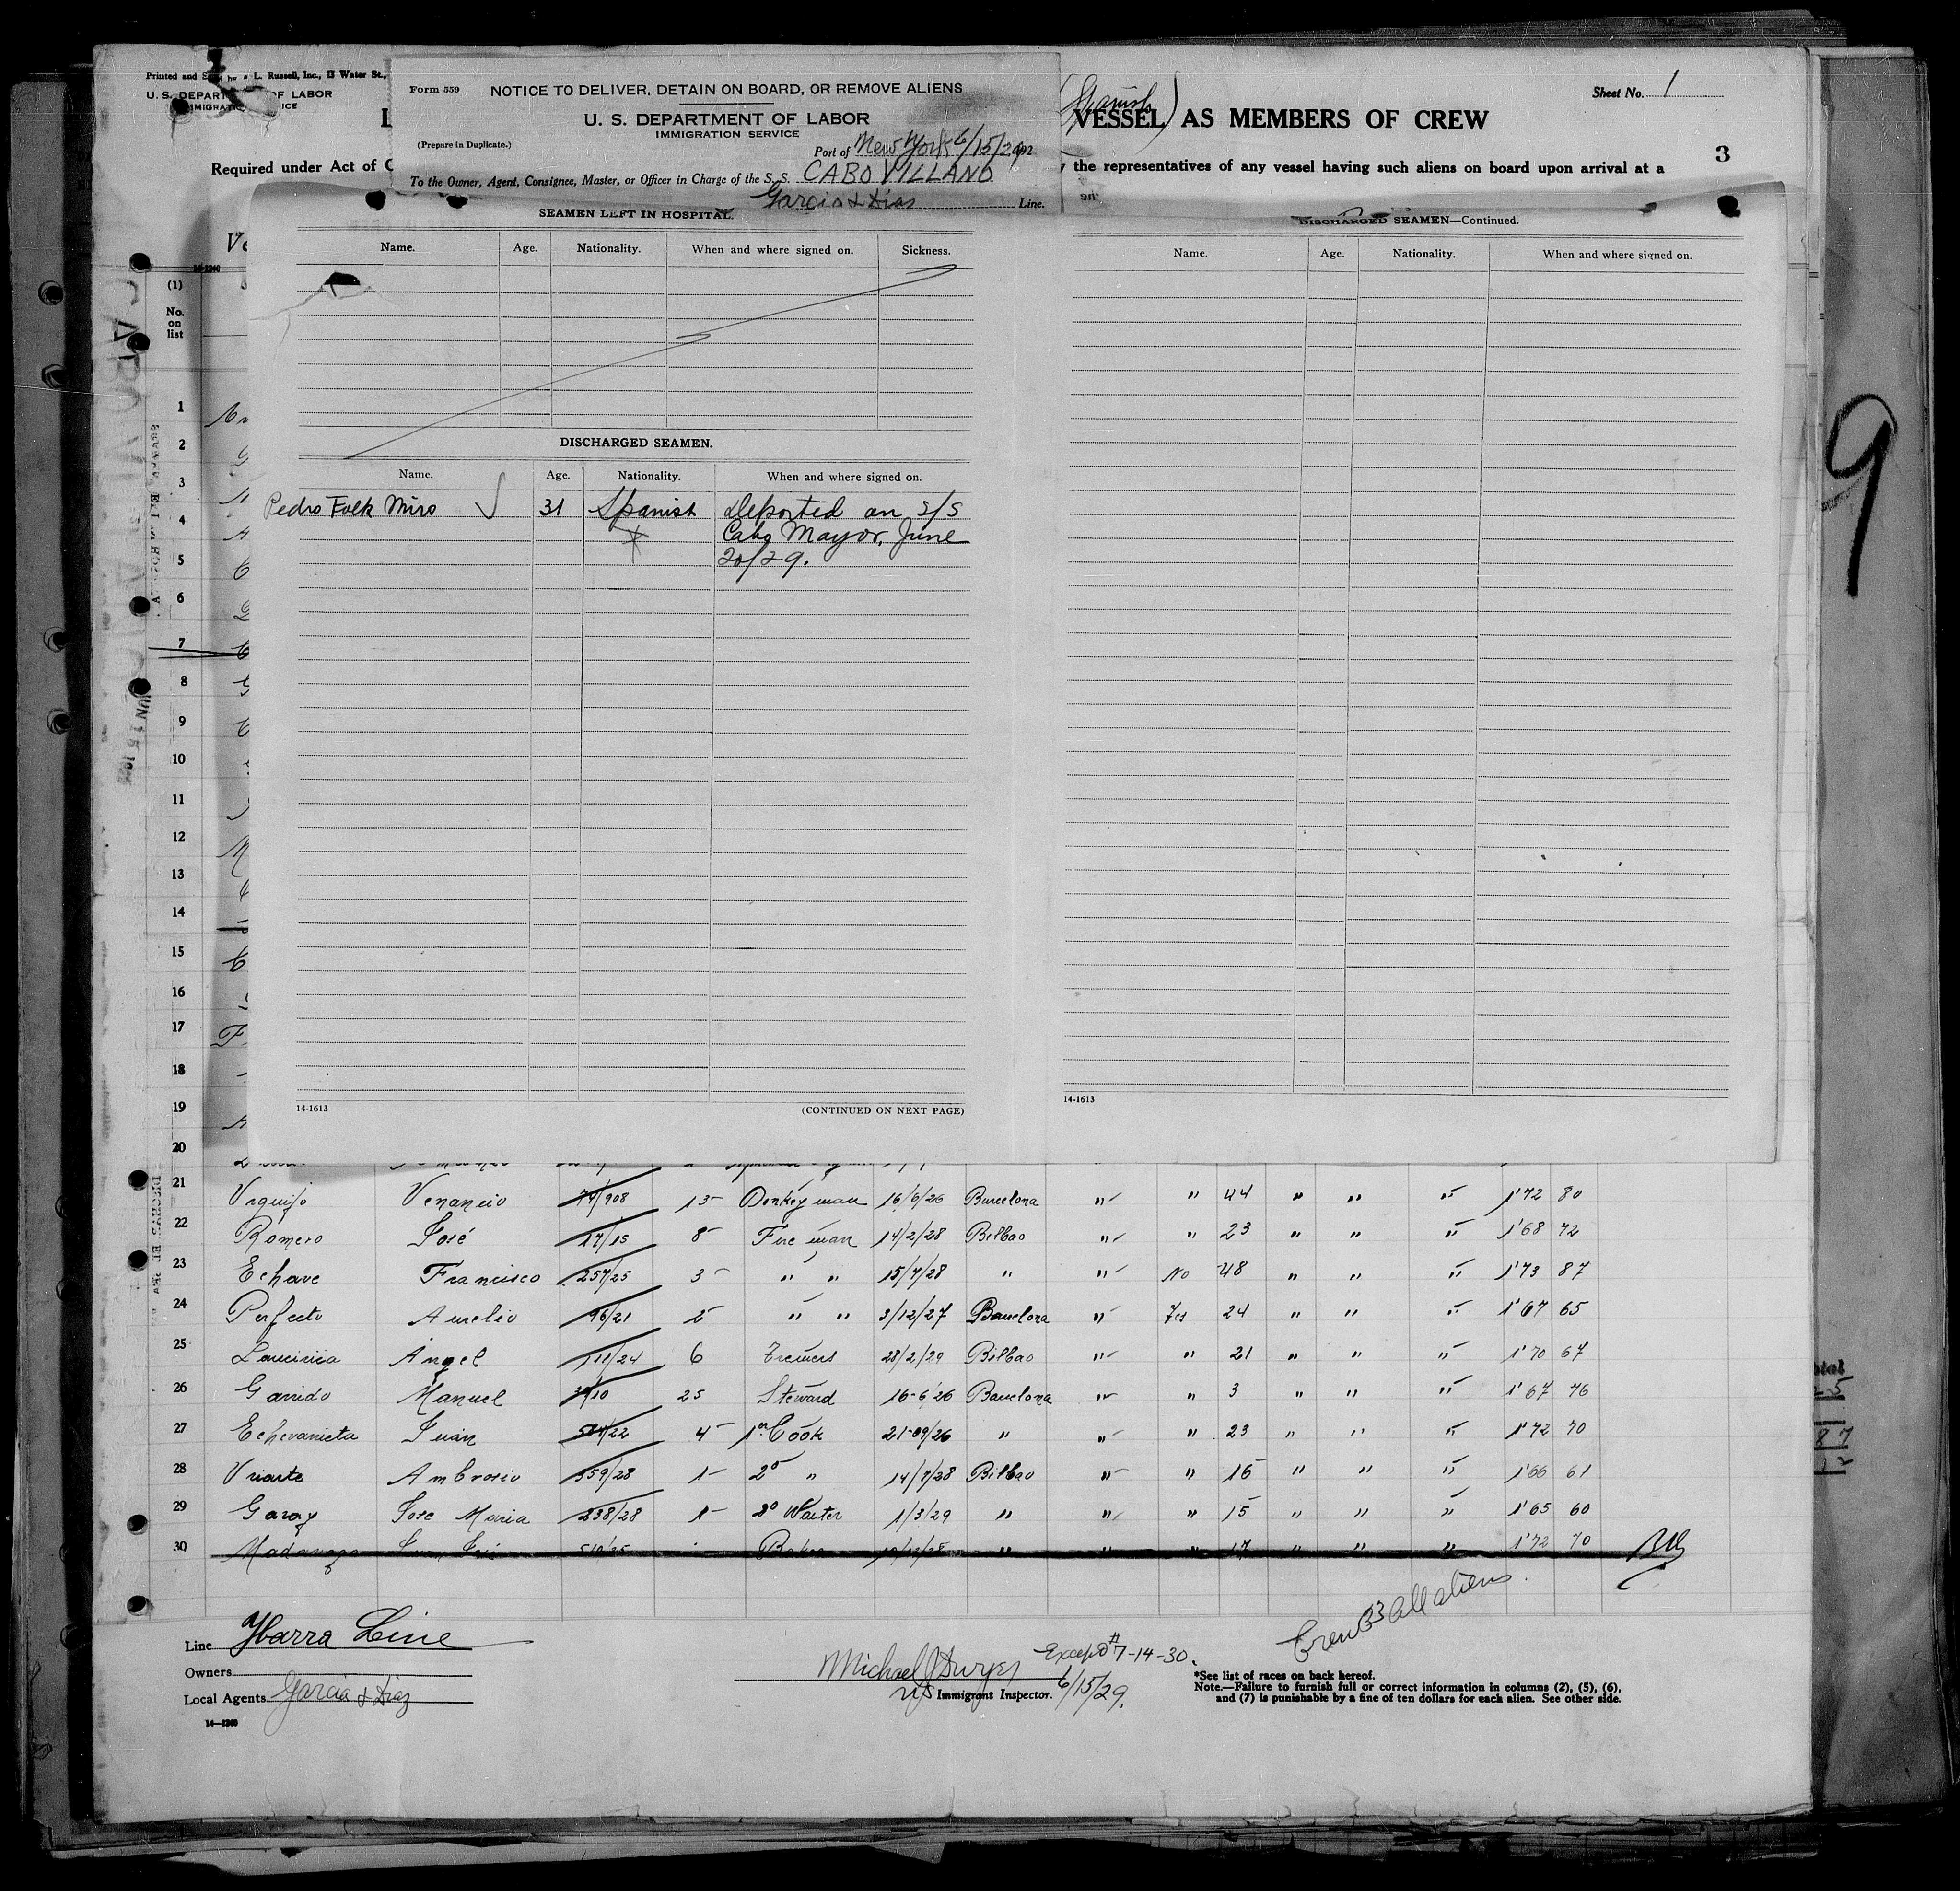 Printed and Sold by L. Russell, Inc., 13 Water St.,
U. S. DEPARTMENT OF LABOR
IMMIGRATION SERVICE
Required under Act of
Form 559 NOTICE TO DELIVER, DETAIN ON BOARD, OR REMOVE ALIENS
U. S. DEPARTMENT OF LABOR
IMMIGRATION SERVICE
(Prepare in Duplicate.)
Port of New York 6/15/29
To the Owner, Agent, Consignee, Master, or Officer in Charge of the S. S. CABO VILLANO
Garcia & Dias Line.
(Spanish)
Sheet No. 1
VESSEL AS MEMBERS OF CREW
3
the representatives of any vessel having such aliens on board upon arrival at a
SEAMEN LEFT IN HOSPITAL.
Name. Age. Nationality. When and where signed on. Sickness.
DISCHARGED SEAMEN.
Name. Age. Nationality. When and where signed on.
Pedro Folk Miro 31 Spanish Deported on S/S
Cabo Mayor, June
20/29.
14-1613 (CONTINUED ON NEXT PAGE)
DISCHARGED SEAMEN—Continued.
Name. Age. Nationality. When and where signed on.
14-1613
9
(1)
No.
on
list
1
2
3
4
5
6
7
8
9
10
11
12
13
14
15
16
17
18
19
20
21 Urquijo Venancio 74/908 15 Donkeyman 16/6/26 Barcelona " " 44 " " " 1'72 80
22 Romero José 17/15 8 Fireman 14/2/28 Bilbao " " 23 " " " 1'68 72
23 Echave Francisco 257/25 3 " " 15/7/28 " " No 48 " " " 1'73 87
24 Perfecto Aurelio 96/21 2 " " 3/12/27 Barcelona " Yes 24 " " " 1'67 65
25 Angel 111/24 6 28/2/29 Bilbao " " 21 " " " 1'70 67
26 Garrido Manuel 25 Steward 16-6'26 Barcelona " " 3 " " " 1'67 76
27 Echevarrieta Juan 4 1er Cook 21-09/26 " " " 23 " " " 1'72 70
28 Uriarte Ambrosio 559/28 1 2o " 14/7/28 Bilbao " " 16 " " " 1'66 61
29 Garay Jose Maria 238/28 1 2o Waiter 1/3/29 " " " 15 " " " 1'65 60
30 Juan Luis " " " 17 " " " 1'72 70
Crew 33 all aliens.
Line Ybarra Line
Owners
Local Agents Garcia & Diaz
14—1240
Michael J Dwyer Except # 7-14-30.
Immigrant Inspector. 6/15/29.
*See list of races on back hereof.
Note.—Failure to furnish full or correct information in columns (2), (5), (6),
and (7) is punishable by a fine of ten dollars for each alien. See other side.